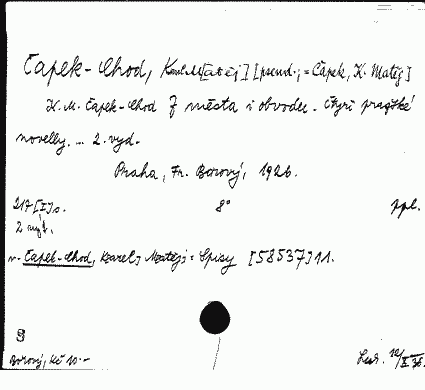 Čapek-Chod, Karel M[atěj] [pseud.; = Čapek, K. Matěj]
K. M. Čapek-Chod Z města i obvodu. Čtyři pražské
novelly. ... 2. vyd.
Praha, Fr. Borový, 1926.
217 [I] s. 8° ppl.
2 myt.
n. Čapek-Chod, Karel, Matěj: Spisy [58537] 11.
Borový, Kč 10.-